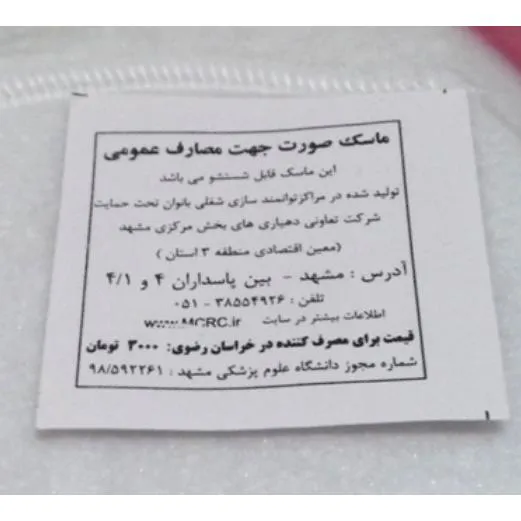 ماسک صورت جهت مصارف عمومی
این ماسک قابل شستشو می باشد
تولید شده در مراکزتوانمند سازی شغلی بانوان تحت حمایت
شرکت تعاونی دهیاری های بخش مرکزی مشهد
(معین اقتصادی منطقه ۳ استان )
آدرس : مشهد - بین پاسداران ۴ و ۴/۱
تلفن : ۳۸۵۵۴۹۲۶ - ۰۵۱
اطلاعات بیشتر در سایت www.MCRC.ir
قیمت برای مصرف کننده در خراسان رضوی: ۳۰۰۰ تومان
شماره مجوز دانشگاه علوم پزشکی مشهد : ۹۸/۵۹۲۲۶۱